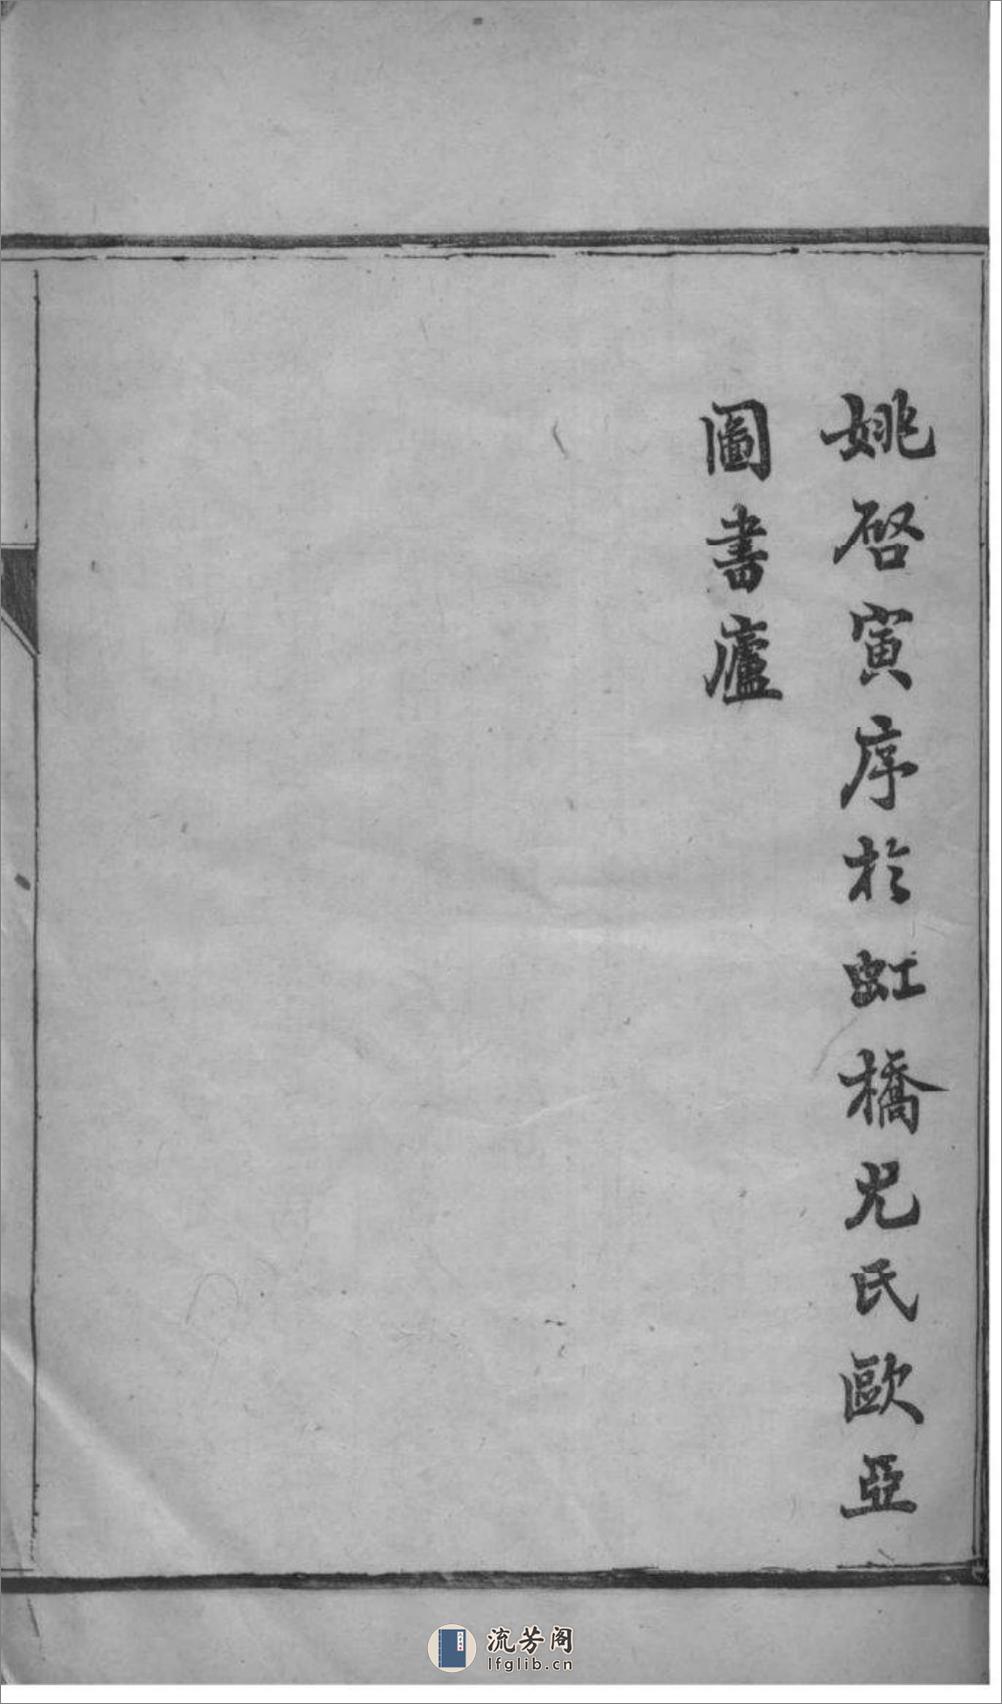 姚啓寅序於虹橋尤氏歐亞
圖書廬
流芳阁
lfglib.cn